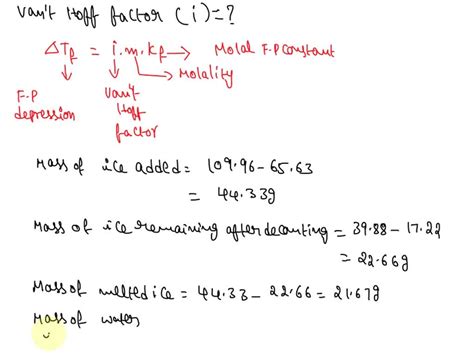 Van't Hoff factor (i) = ?
ΔTf = i.m.kf → Molal F.P constant
Molality
F.P depression
Van't Hoff factor
Mass of ice added = 109.96 - 65.63
= 44.33g
Mass of ice remaining after decanting = 39.88 - 17.22
= 22.66g
Mass of melted ice = 44.33 - 22.66 = 21.67g
Mass of water